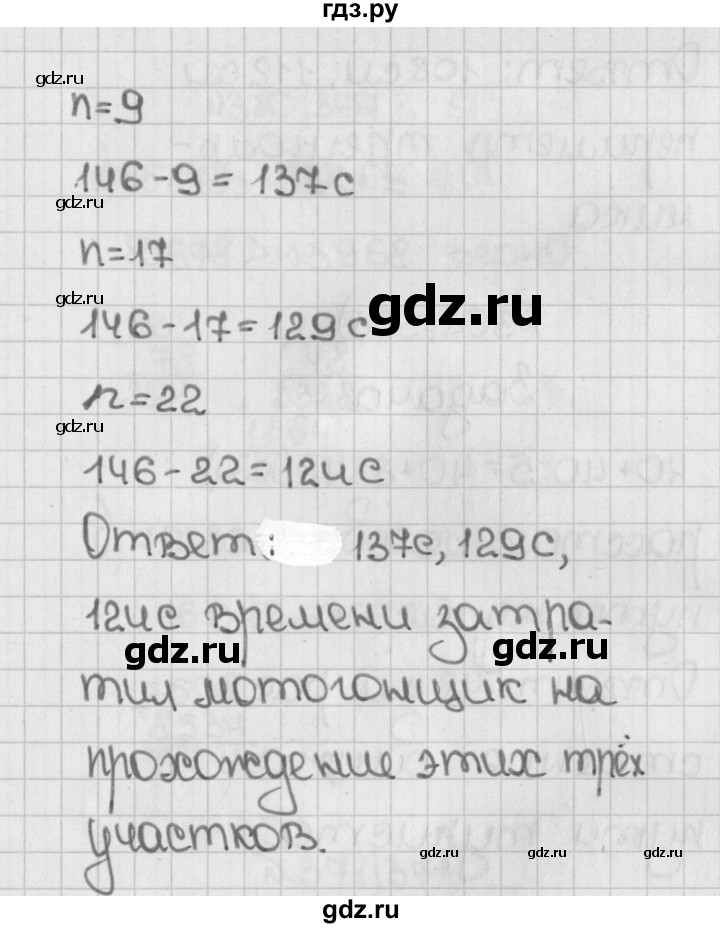 гдз.ру
gdz.ru
n=9
146-9=137с
gdz.ru
n=17
gdz.ru
146-17=129с
gdz.ru
n=22
gdz.ru
146-22=124с
Ответ: 137с, 129с,
124с времени затра-
gdz.ru
gdz.ru
тил мотогонщик на
прохождение этих трёх
участков.
gdz.ru
gdz.ru
gdz.ru
gdz.ru